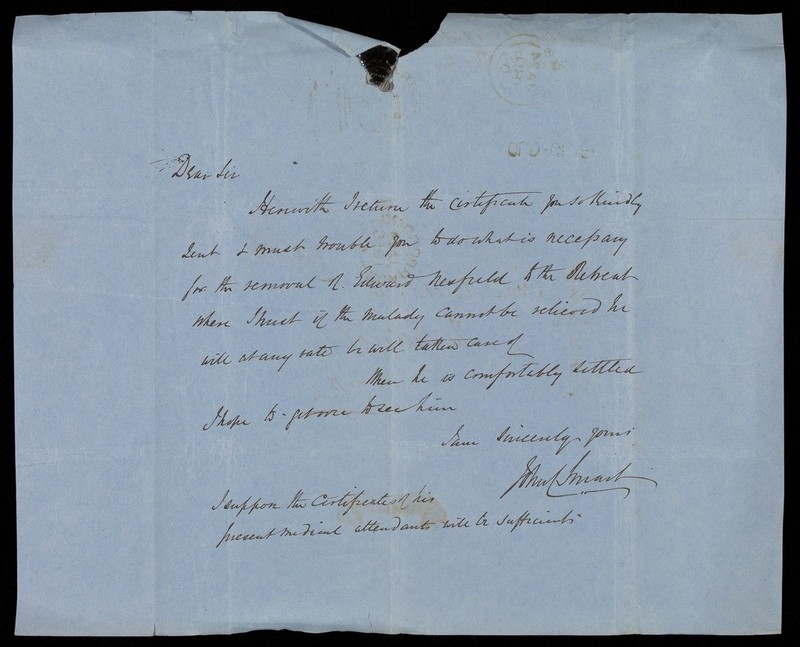 Dear Sir
Herewith I return the Certificate you so kindly
sent & must trouble you to do what is necessary
for the removal of Edward Nesfield to the Retreat
where I trust if the malady cannot be relieved he
will at any rate be well taken care of
When he is comfortably settled
I hope to get over to see him
I am Sincerely yours
John Smart
I suppose the Certificates of his
present medical attendants will be sufficient